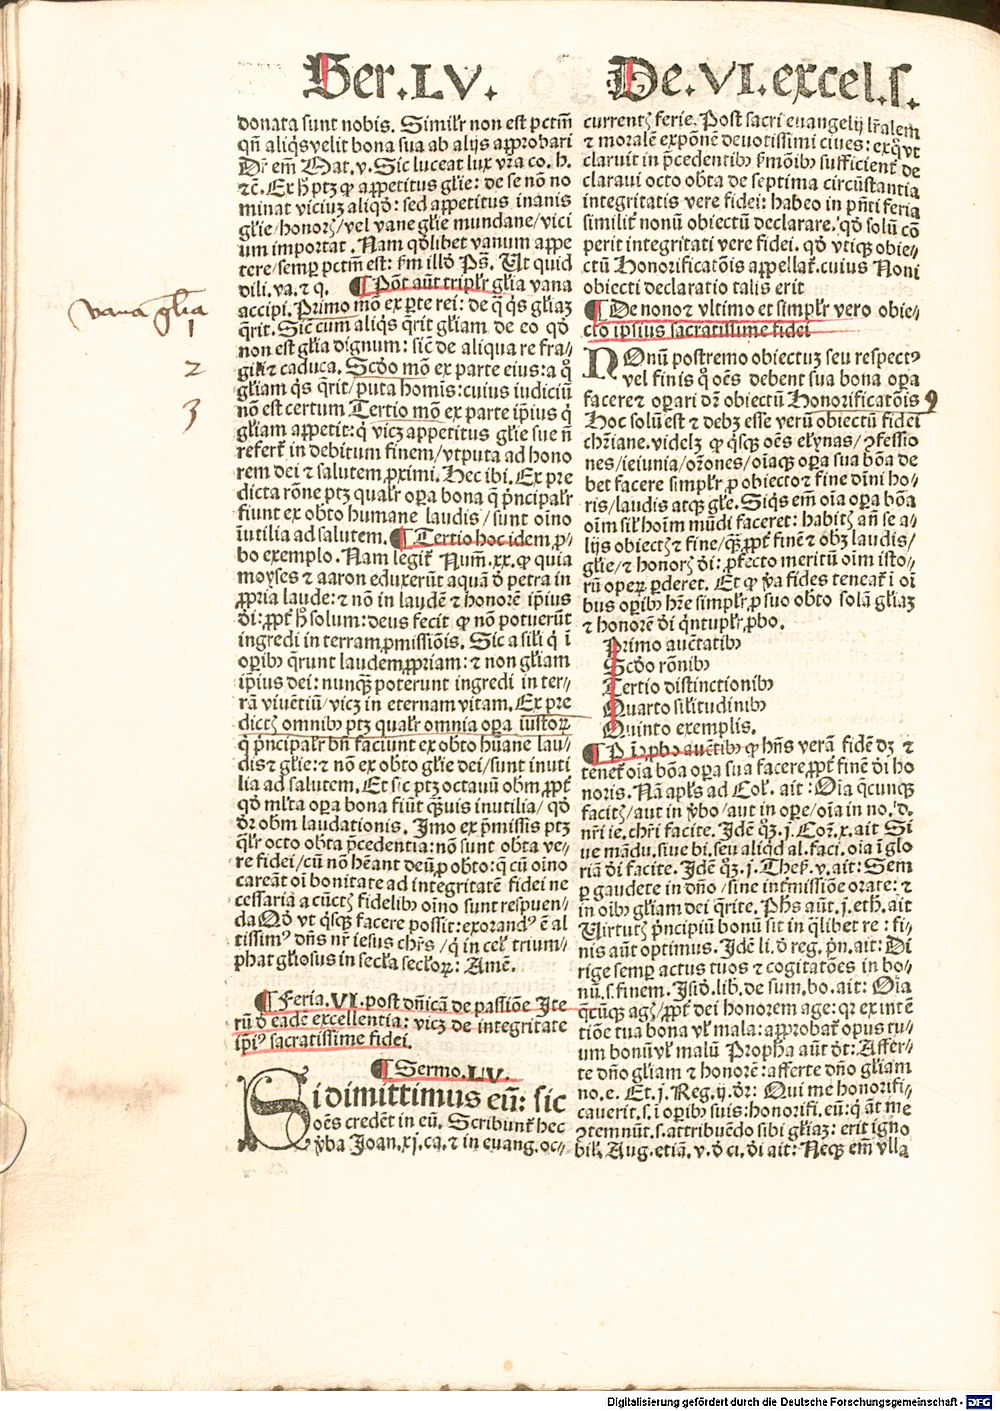 Ser.LV.
De.VI.excel.s.
donata sunt nobis. Similr̄ non est pctm̄
qn̄ aliqs velit bona sua ab alijs approbari
Dr̄ em̄ Mat.v. Sic luceat lux vr̄a co. h.
⁊c̄. Ex hͦ ptꝫ ꝙ appetitus gl̄ie: de se nō no
minat viciuꝫ aliqḋ: sed appetitus inanis
gl̄ie/honorꝭ/vel vane gl̄ie mundane/vici
um importat. Nam qḋlibet vanum appe
tere/semꝑ pctm̄ est: ẜm illḋ Ps̄. Ut quid
dili.va.⁊ q. ¶ Pōt aūt triplr̄ gl̄ia vana
accipi. Primo mō ex ꝑte rei: de q̄ qs gl̄iaꝫ
q̄rit. Sic cum aliqs q̄rit gl̄iam de eo qḋ
non est gl̄ia dignum: sic̄ de aliqua re fra⸗
gili ⁊ caduca. Scḋo mō ex parte eius: a qͦ
gl̄iam qs q̄rit/puta homis̄: cuius iudiciū
nō est certum Tertio mō ex parte ip̄ius q̇
gl̄iam appetit: q̇ vicꝫ appetitus gl̄ie sue n̄
refert̄ in debitum finem/vtputa ad hono
rem dei ⁊ salutem proximi. Hec ibi. Ex pre
dicta rōne ptꝫ qualr̄ oꝑa bona q̄ p̄ncipalr̄
fiunt ex obto humane laudis/sunt oīno
īutilia ad salutem. ¶ Tertio hoc idem ꝓ⸗
bo exemplo. Nam legit̄ Num̄.xx. ꝙ quia
moyses ⁊ aaron eduxerūt aquā ḋ petra in
ꝓpria laude: ⁊ nō in laudē ⁊ honorē ip̄ius
ḋi: ꝓpt̄ hͦ solum: deus fecit ꝙ nō potuerūt
ingredi in terram ꝓmissiōis. Sic a sil̄i q̇ ī
oꝑibꝰ q̄runt laudem ꝓpriam: ⁊ non gl̄iam
ip̄ius dei: nunqꝫ poterunt ingredi in ter⸗
rā viuētiū/vicꝫ in eternam vitam. Ex pre
dictꝭ omnibꝰ ptꝫ qualr̄ omnia oꝑa iustoꝝ
q̇ p̄ncipalr̄ bn̄ faciunt ex obto hūane lau⸗
dis ⁊ gl̄ie: ⁊ nō ex obto gl̄ie dei/sunt inuti
lia ad salutem. Et sic ptꝫ octauū obm̄ ꝓpt̄
qḋ ml̄ta oꝑa bona fiūt qꝫuis inutilia/qḋ
dr̄ obm̄ laudationis. Imo ex p̄missis ptꝫ
q̄lr̄ octo obta p̄cedentia: nō sunt obta ve⸗
re fidei/cū nō hēant deū ꝓ obto: q̄ cū oīno
careāt oī bonitate ad integritatē fidei ne
cessaria a cūctꝭ fidelibꝰ oīno sunt respuen⸗
da Qḋ vt qsqꝫ facere possit: exorandꝰ ē al
tissimꝰ dn̄s nr̄ iesus chr̄s/q̇ in cel̄ trium⸗
phat gl̄iosus in secl̄a secl̄oꝝ: Amē.
¶ Feria.VI.post dn̄icā de passiōe Ite
rū ḋ eadē excellentia: vicꝫ de integritate
ip̄iꝰ sacratissime fidei.
¶ Sermo.LV.
Si dimittimus eū: sic
oēs credēt in eū. Scribunt̄ hec
v̄ba Joan.xj.ca.⁊ in euang.oc⸗
vana gl̄ia
1
2
3
currentꝭ ferie. Post sacri euangelij lr̄alem
⁊ moralē expōnē deuotissimi ciues: ex qͦ vt
claruit in p̄cedentibꝰ ẜmōibꝰ sufficient̄ de
claraui octo obta de septima circūstantia
integritatis vere fidei: habeo in pn̄ti feria
similit̄ nonū obiectū declarare. qḋ solū cō
perit integritati vere fidei. qḋ vtiqꝫ obie⸗
ctū Honorificatōis appellat̄. cuius Noni
obiecti declaratio talis erit
¶ De nono ⁊ vltimo et simplr̄ vero obie⸗
cto ipsius sacratissime fidei
NOnū postremo obiectuꝫ seu respectꝰ
vel finis qͦ oēs debent sua bona oꝑa
facere ⁊ oꝑari dr̄ obiectū Honorificatōis
Hoc solū est ⁊ debꝫ esse verū obiectū fidei
chr̄iane. videlꝫ ꝙ qsqꝫ oēs elynas/ꝯfessio
nes/ieiunia/or̄ones/oīaqꝫ oꝑa sua bōa de
bet facere simplr̄ ꝓ obiecto ⁊ fine dn̄i ho⸗
ris/laudis atqꝫ gl̄e. Siqs em̄ oīa oꝑa bōa
oīm sil̄ hoīm mūdi faceret: habitꝭ an̄ se a⸗
lijs obiectꝭ ⁊ fine/qꝫ ꝓpt̄ finē ⁊ obꝫ laudis/
gl̄ie/⁊ honorꝭ ḋi: ꝓfecto meritū oīm isto⸗
rū oꝑeꝝ ꝑderet. Et ꝙ v̄a fides teneat̄ ī oī
bus oꝑibꝰ hr̄e simplr̄ ꝓ suo obto solā gl̄iaꝫ
⁊ honorē ḋi qntuplr̄ ꝓbo.
Primo auc̄tatibꝰ
Scḋo rōnibꝰ
Tertio distinctionibꝰ
Quarto sil̄itudinibꝰ
Quinto exemplis.
¶ Pͦ īq̄ ꝓbo auc̄tibꝰ ꝙ hn̄s verā fidē dꝫ ⁊
tenet̄ oīa bōa oꝑa sua facere ꝓpt̄ finē ḋi ho
noris. Nā apl̄s ad Col̄. ait: Oīa q̄cunqꝫ
facitꝭ/aut in v̄bo/aut in oꝑe/oīa in no.'d.
nr̄i ie.chr̄i facite. Idē qꝫ.j.Coꝝ.x.ait Si
ue mādu.siue bi.seu aliqḋ al.faci.oīa ī glo
riā ḋi facite. Idē qꝫ.j.Thes̄.v.ait: Sem
ꝑ gaudete in dn̄o/sine int̄missiōe orate: ⁊
in oībꝰ gl̄iam dei q̄rite. Ph̄s aūt.j.eth̄.ait
Virtutꝭ p̄ncipiū bonū sit in q̄libet re: fi⸗
nis aūt optimus. Idē li.ḋ reg.pn̄.ait: Di
rige semꝑ actus tuos ⁊ cogitatōes in bo⸗
nū.s.finem. Isiḋ.lib.de sum.bo.ait: Oīa
q̄cūqꝫ agꝭ/ꝓpt̄ dei honorem age: qꝛ ex intē
tiōe tua bona vl̄ mala: approbat̄ opus tu⸗
um bonū vl̄ malū Propha aūt ḋt: Affer⸗
te dn̄o gl̄iam ⁊ honorē: afferte dn̄o gl̄iam
no.e. Et.j.Reg.ij.dr̄: Qui me honorifi⸗
cauerit.s.ī oꝑibꝰ suis: honorifi.eū: q̇ āt me
ꝯtemnūt.s.attribuēdo sibi gl̄iaꝫ: erit igno
bil̄. Aug.etiā.v.ḋ ci.ḋi ait: Neqꝫ em̄ vlla
Digitalisierung gefördert durch die Deutsche Forschungsgemeinschaft - DFG